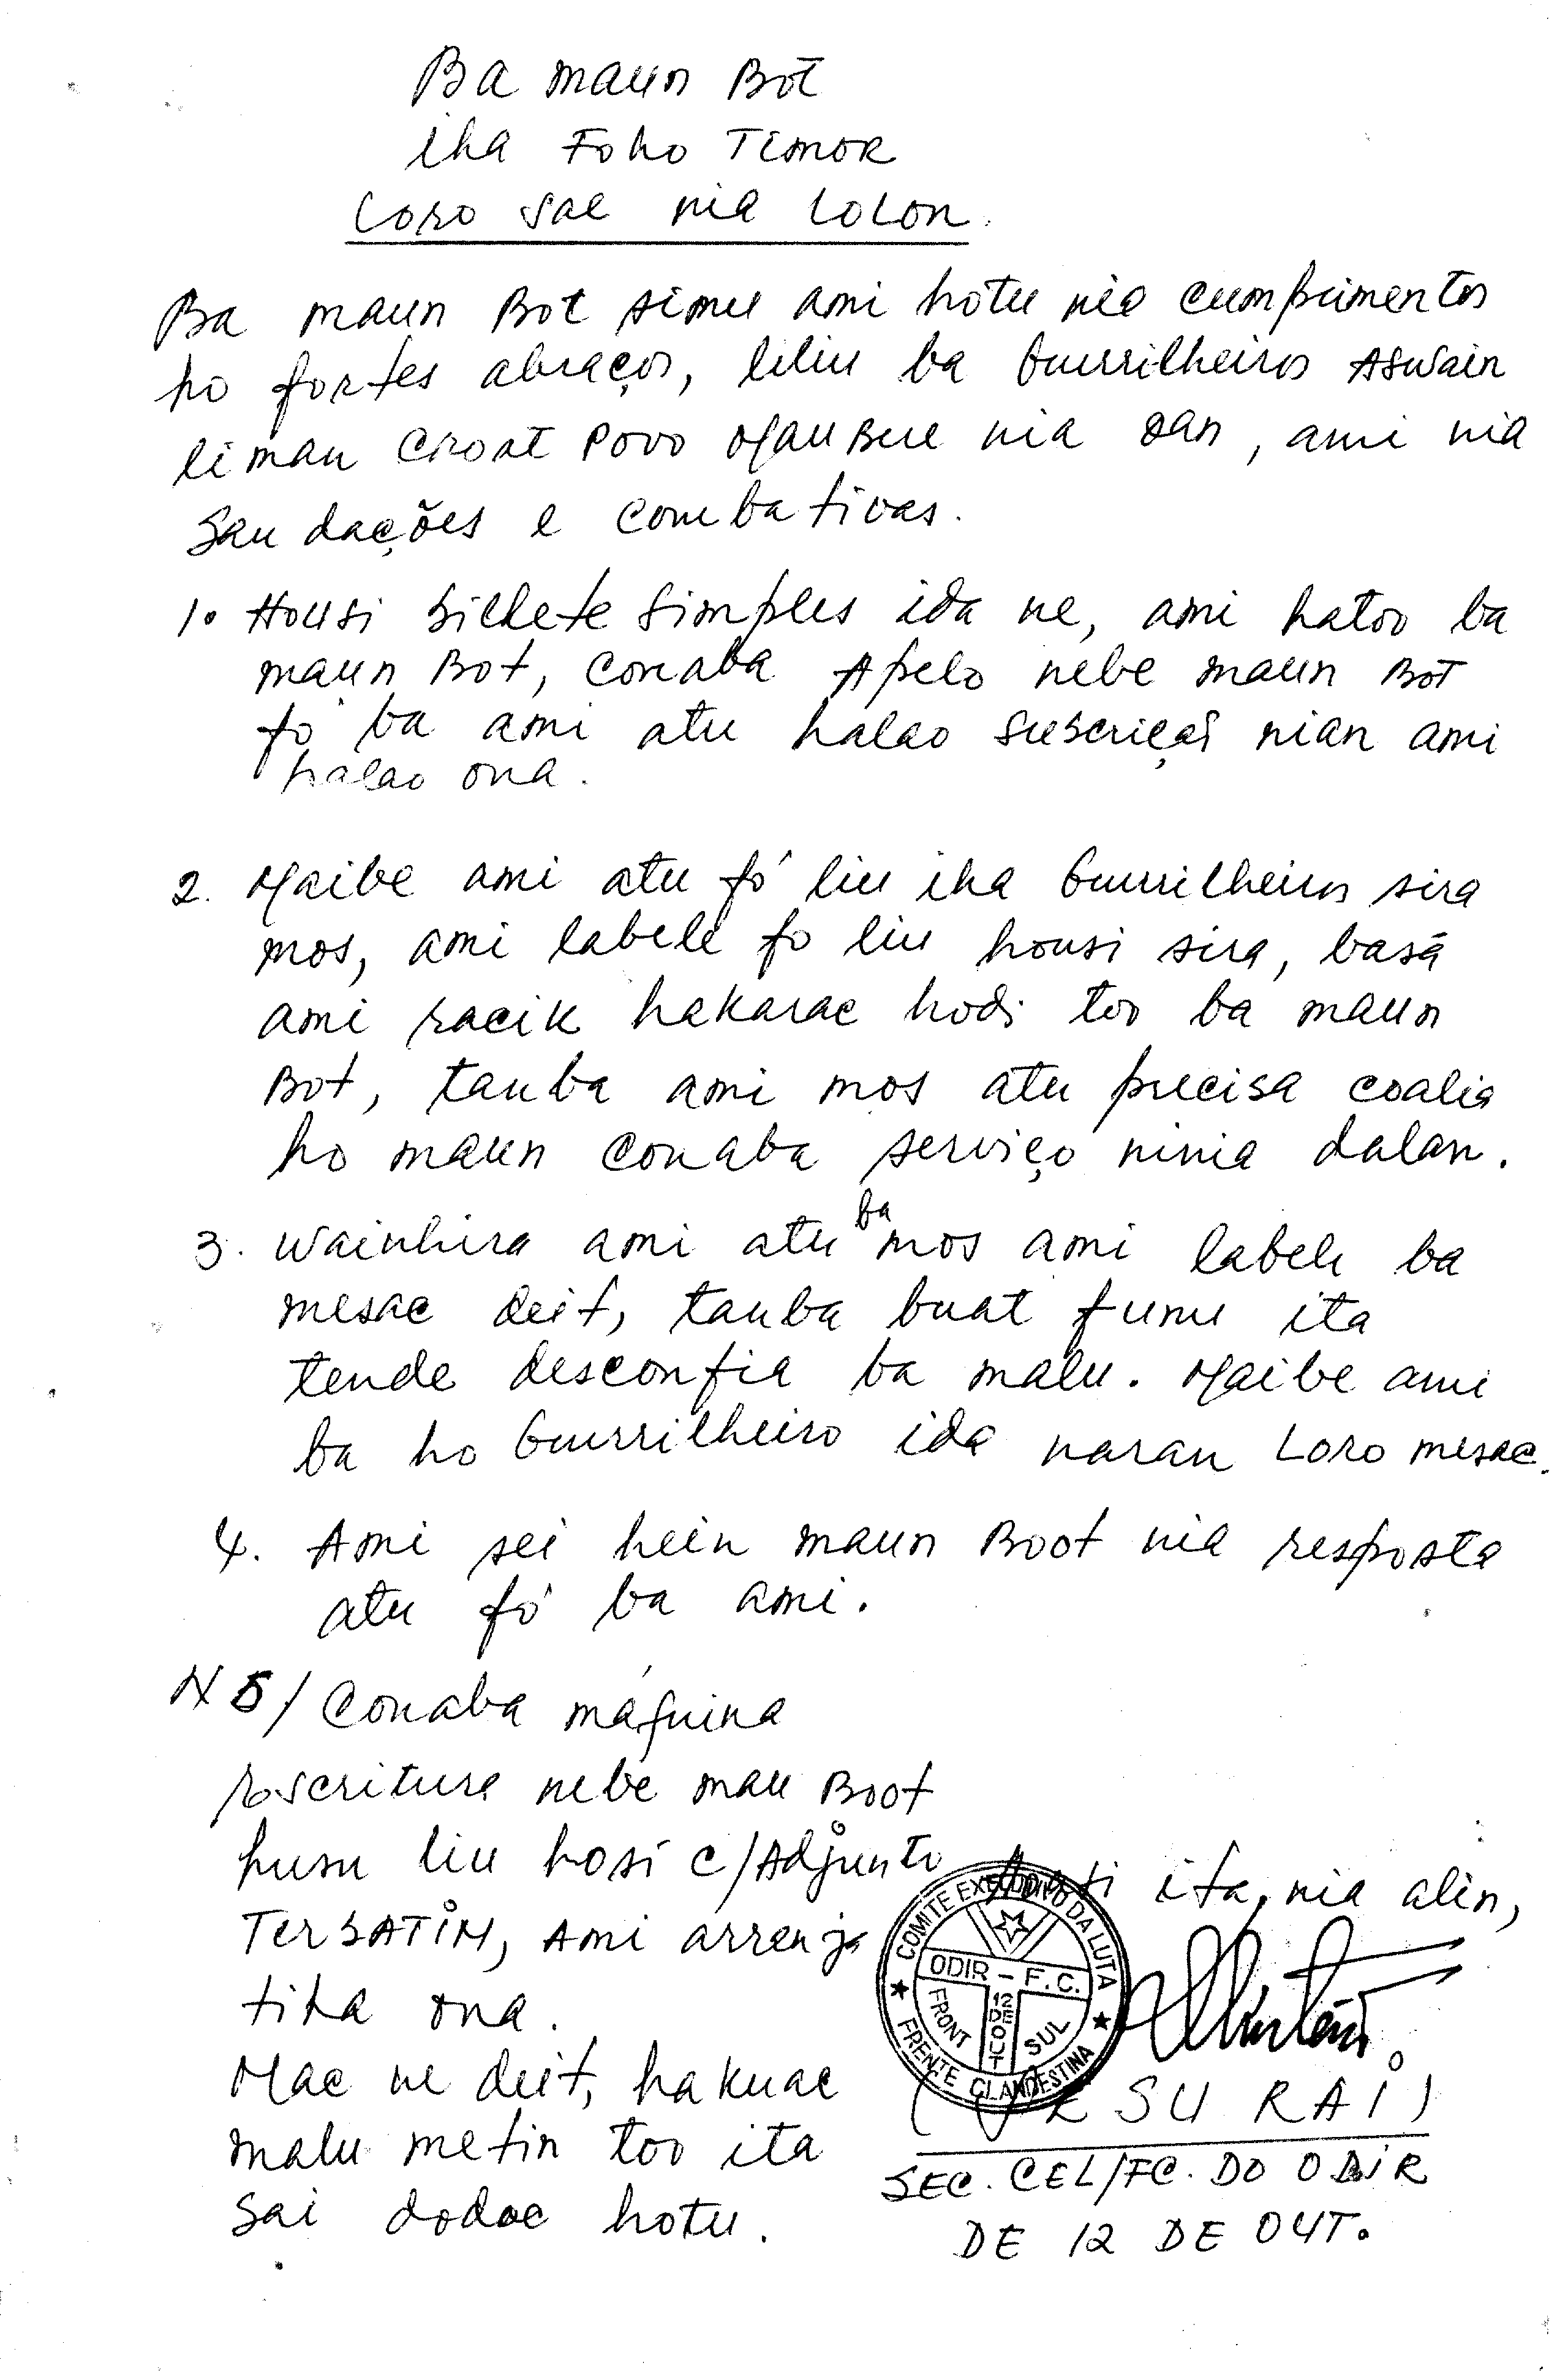 Ba maun Bot
iha Foho Timor
Loro sae nia lolon.
Ba maun Bot simu ami hotu nia cumprimentos
ho fortes abraços, liliu ba Guerrilheiros Aswain
liman croat Povo Maubere nia oan, ami nia
Saudações e combativas.
1. Housi bilhete simples ida ne, ami hatoo ba
maun Bot, conaba Apelo nebe maun Bot
fó ba ami atu halao suscrição nian ami
halao ona.
2. Maibe ami atu fó liu iha Guerrilheiros sira
mos, ami labele fo liu housi sira, basá
ami racik hakarac hodi too ba maun
Bot, tauba ami mos atu precisa coalia
ho maun conaba serviço ninia dalan.
3. Wainhira ami atu ba mos ami labele ba
mesac deit, tauba buat funu ita
tende desconfia ba malu. Maibe ami
ba ho Guerrilheiro ida naran Loro mesac.
4. Ami sei hein maun Boot nia resposta
atu fó ba ami.
NB/ Conaba máquina
escritura nebe mau Boot
husu liu hosi C/Adjunto
TERSATIM, Ami arranja
tiha ona.
Mac ne deit, hakuac
malu metin too ita
sai dodoc hotu.
ita nia alin,
COMITE EXECUTIVO DA LUTA
ODIR - F.C.
12 DE OUT
FRONT SUL
FRENTE CLANDESTINA
(URSU RAI)
SEC. CEL/FC. DO ODIR
DE 12 DE OUT.